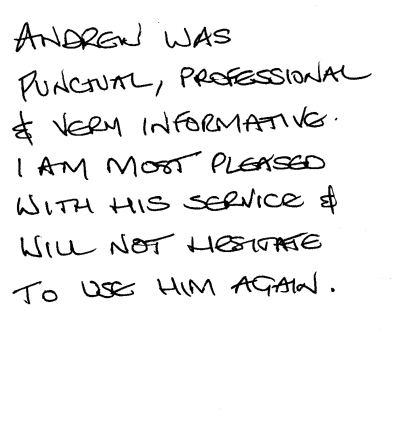 ANDREW WAS
PUNCTUAL, PROFESSIONAL
& VERY INFORMATIVE.
I AM MOST PLEASED
WITH HIS SERVICE &
WILL NOT HESITATE
TO USE HIM AGAIN.